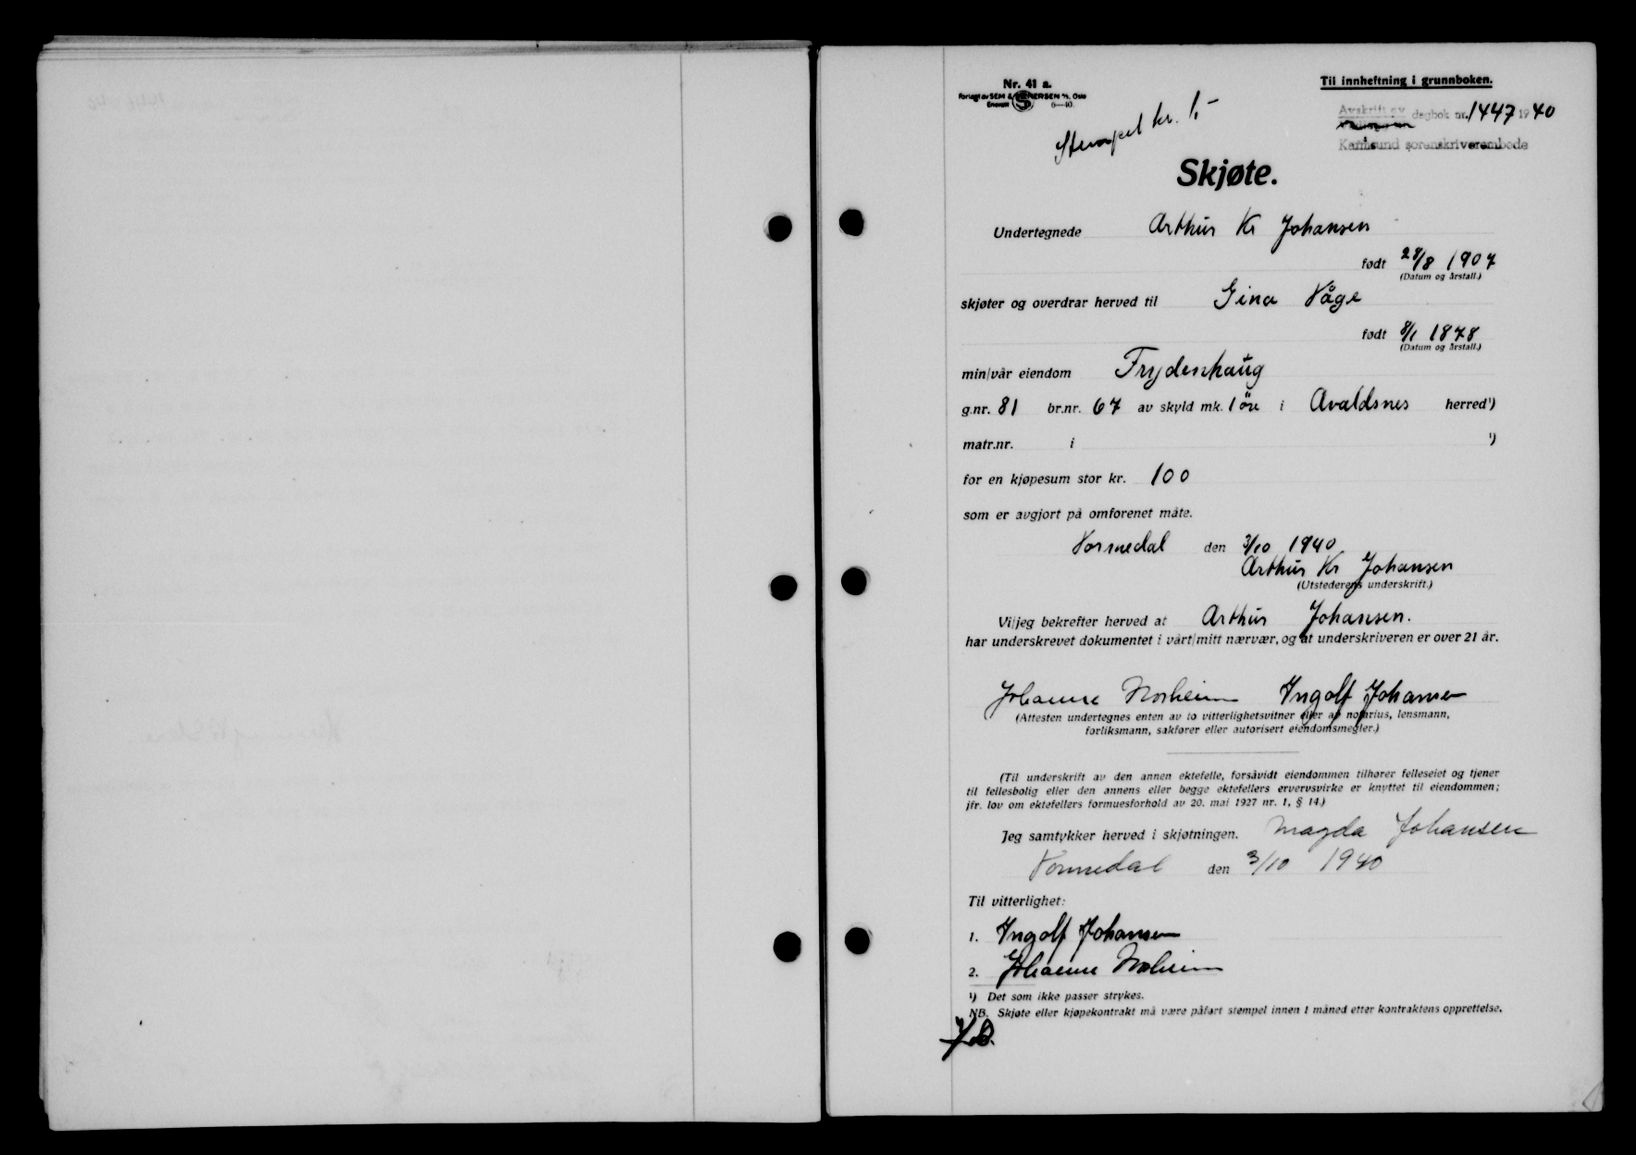 Nr. 41 a.
Forlagt av SEM & STENERSEN A/S, Oslo
Enerett 6—40.
Til innheftning i grunnboken.
Stempel kr. 1,-
Avskrift av dagbok nr. 1447 1940
Karmsund sorenskriverembede
Skjøte.
Undertegnede Arthur Kr Johansen
født 28/8 1907
(Datum og årstall.)
skjøter og overdrar herved til Gina Våge
født 8/1 1878
(Datum og årstall.)
min/vår eiendom Frydenhaug
g.nr. 81 br.nr. 67 av skyld mk. 1 øre i Avaldsnes herred¹)
matr.nr. i ¹)
for en kjøpesum stor kr. 100
som er avgjort på omforenet måte.
Vormedal den 3/10 1940
Arthur Kr Johansen
(Utstederens underskrift.)
Vi/jeg bekrefter herved at Arthur Johansen.
har underskrevet dokumentet i vårt/mitt nærvær, og at underskriveren er over 21 år.
Johanne Norheim Ingolf Johansen
(Attesten undertegnes enten av to vitterlighetsvitner eller av notarius, lensmann,
forliksmann, sakfører eller autorisert eiendomsmegler.)
(Til underskrift av den annen ektefelle, forsåvidt eiendommen tilhører felleseiet og tjener
til fellesbolig eller den annens eller begge ektefellers ervervsvirke er knyttet til eiendommen;
jfr. lov om ektefellers formuesforhold av 20. mai 1927 nr. 1, § 14.)
Jeg samtykker herved i skjøtningen. Magda Johansen
Vormedal den 3/10 1940
Til vitterlighet:
1. Ingolf Johansen
2. Johanne Norheim
¹) Det som ikke passer strykes.
NB. Skjøte eller kjøpekontrakt må være påført stempel innen 1 måned etter kontraktens opprettelse.